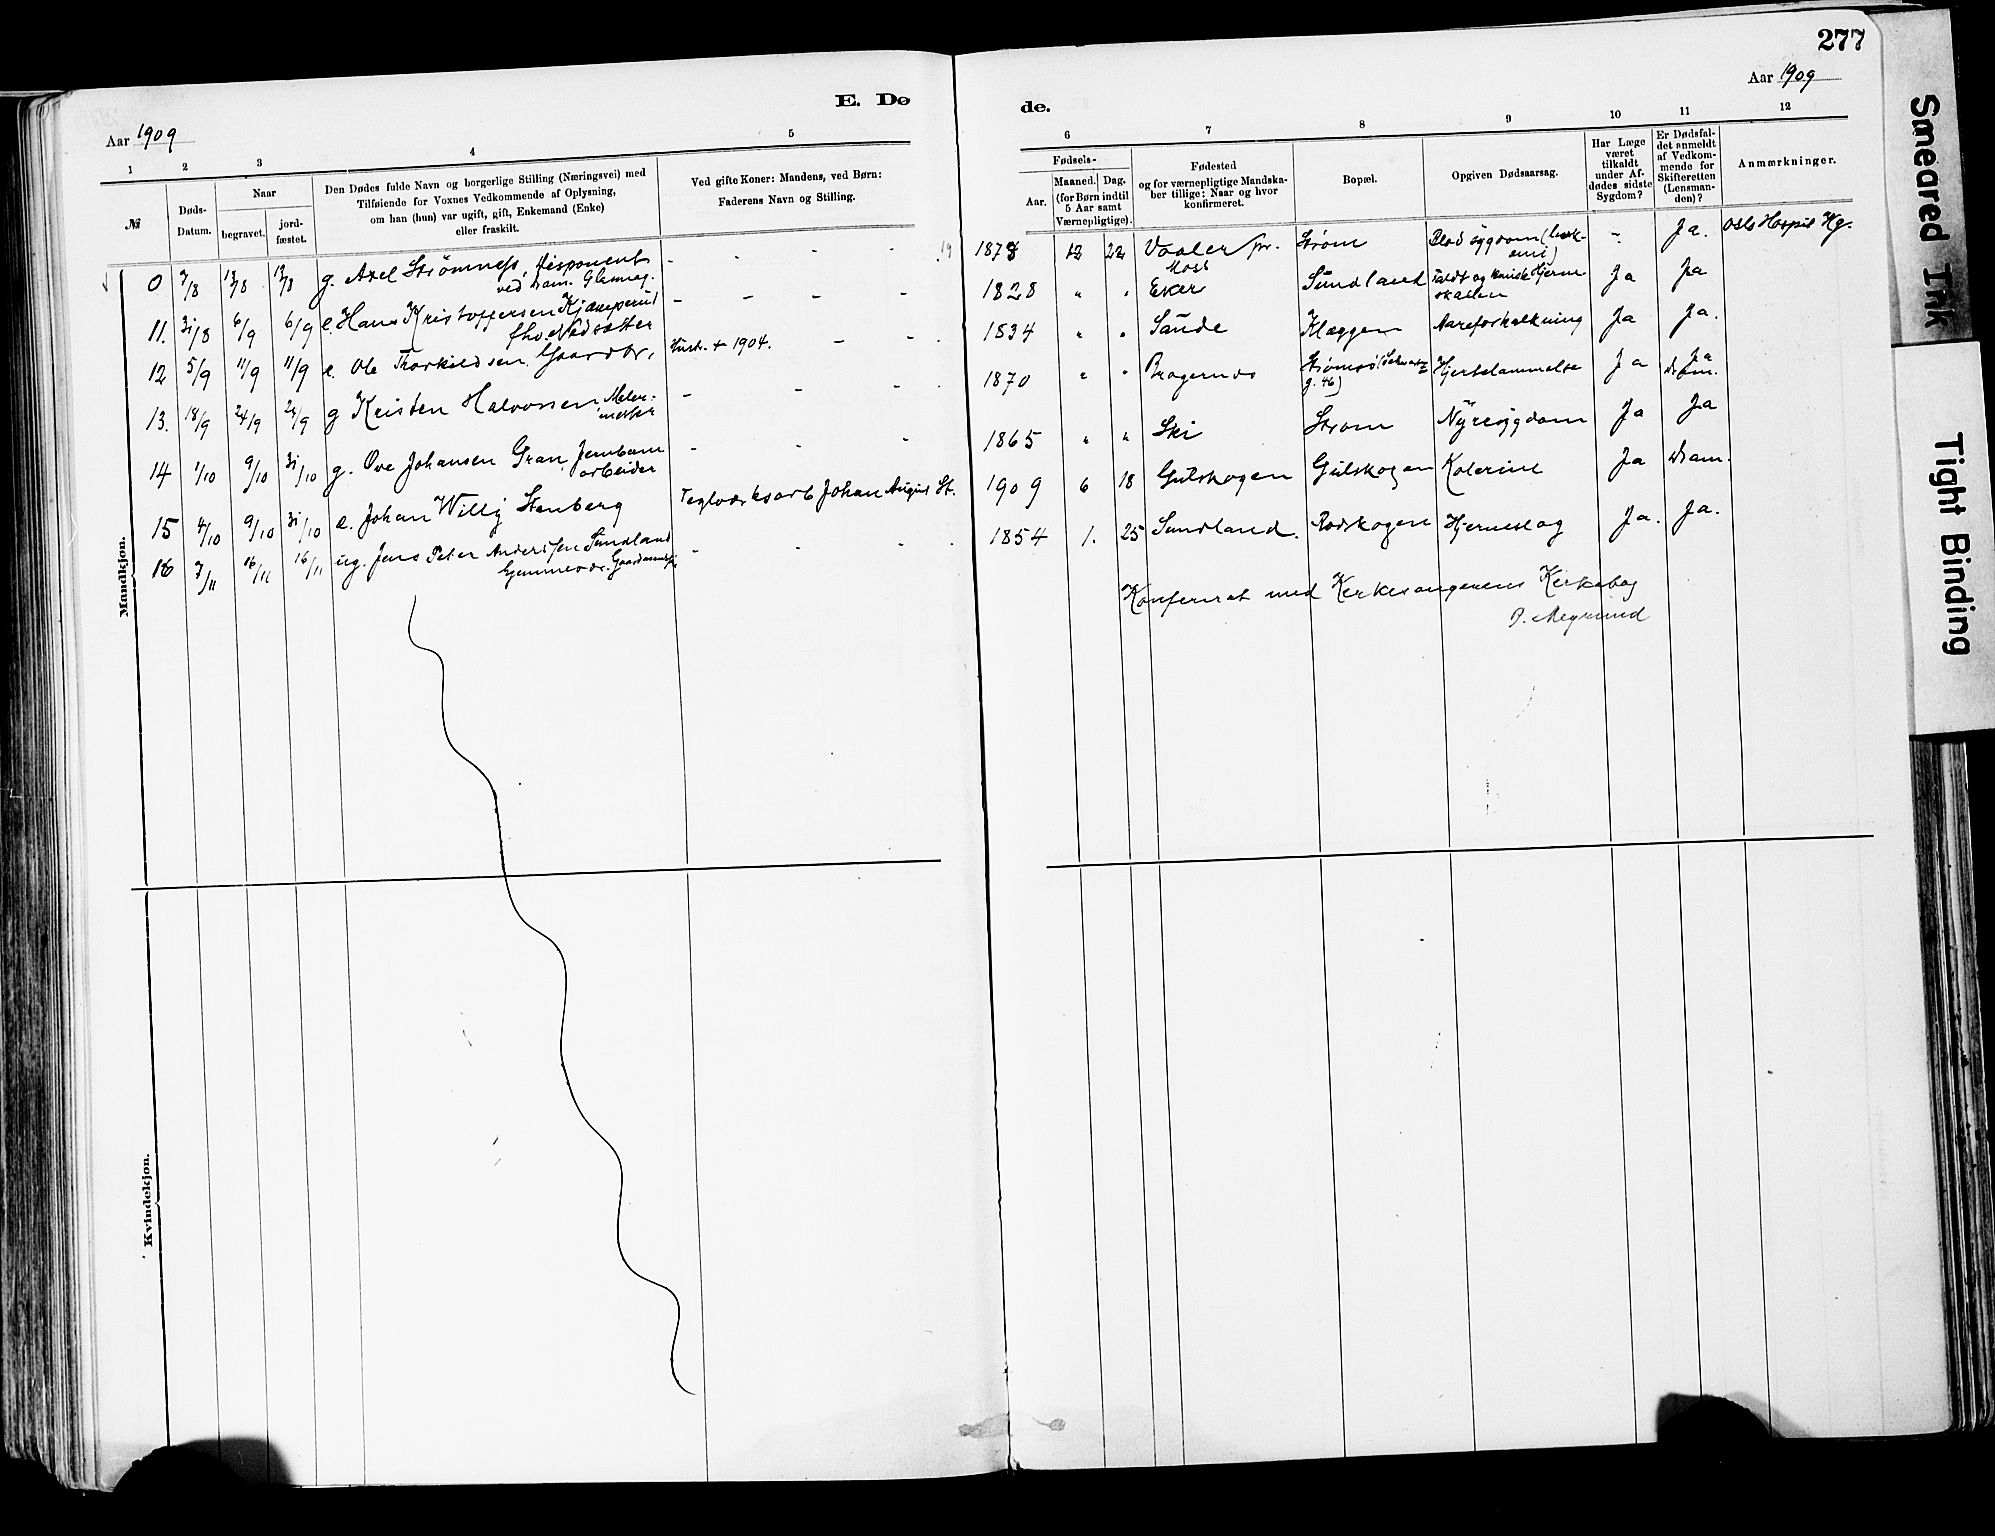 277
E. Dø
de.
Aar 1909
Aar 1909
1 2 3 4 5
6 7 8 9 10 11 12
№
Døds-
Datum.
Naar
begravet.
jord-
fæstet.
Den Dødes fulde Navn og borgerlige Stilling (Næringsvei) med
Tilføiende for Voxnes Vedkommende af Oplysning,
om han (hun) var ugift, gift, Enkemand (Enke)
eller fraskilt.
Ved gifte Koner: Mandens, ved Børn:
Faderens Navn og Stilling.
Fødsels-
Aar.
Maaned.
Dag.
(for Børn indtil
5 Aar samt
Værnepligtige).
Fødested
og for værnepligtige Mandska-
ber tillige: Naar og hvor
konfirmeret.
Bopæl.
Opgiven Dødsaarsag.
Har Læge
været
tilkaldt
under Af-
dødes sidste
Sygdom?
Er Dødsfal-
det anmeldt
af Vedkom-
mende for
Skifteretten
(Lensman-
den)?
Anmærkninger.
Mandkjøn.
0 7/8 13/8 13/8 g. Axel Strømness, Disponent - - - - 1873 12 22 Vaaler pr. Strøm Blodsygdom - Ja. Oslo Hospit
ved Dram. Glasmag. Moss
11. 31/8 6/9 6/9 e. Hans Kristoffersen Kjæmperud - - - - 1828 " " Eker Sundland Ja Ja
12 5/9 11/9 11/9 e. Ole Thorkildsen Gaardbr. Hustr. + 1904. - - 1834 " " Sande Klæggen Aareforkalkning Ja Ja.
13. 18/9 24/9 24/9 g Kristen Halvorsen Maler- - - - 1870 " " Bragernes Strømsø Hjertelammelse Ja Ja
mester g. 46) Dram.
14 1/10 9/10 31/10 g. Ove Johansen Gran Jernbane - - - 1865 " " Ski Strøm Nyresygdom Ja Ja
arbeider
15 4/10 9/10 31/10 e. Johan Willy Stenberg Teglværksarb Johan August St. 1909 6 18 Gulskogen Gulskogen Kolerine Ja Dram.
16 7/11 16/11 16/11 ug. Jens Peter Anderssen Sundland - - - 1854 1. 25 Sundland. Rødskogen Hjerneslag Ja. Ja.
Konfereret med Kirkesangerens Kirkebog
Kvindekjøn.
Smeared Ink
Tight Binding